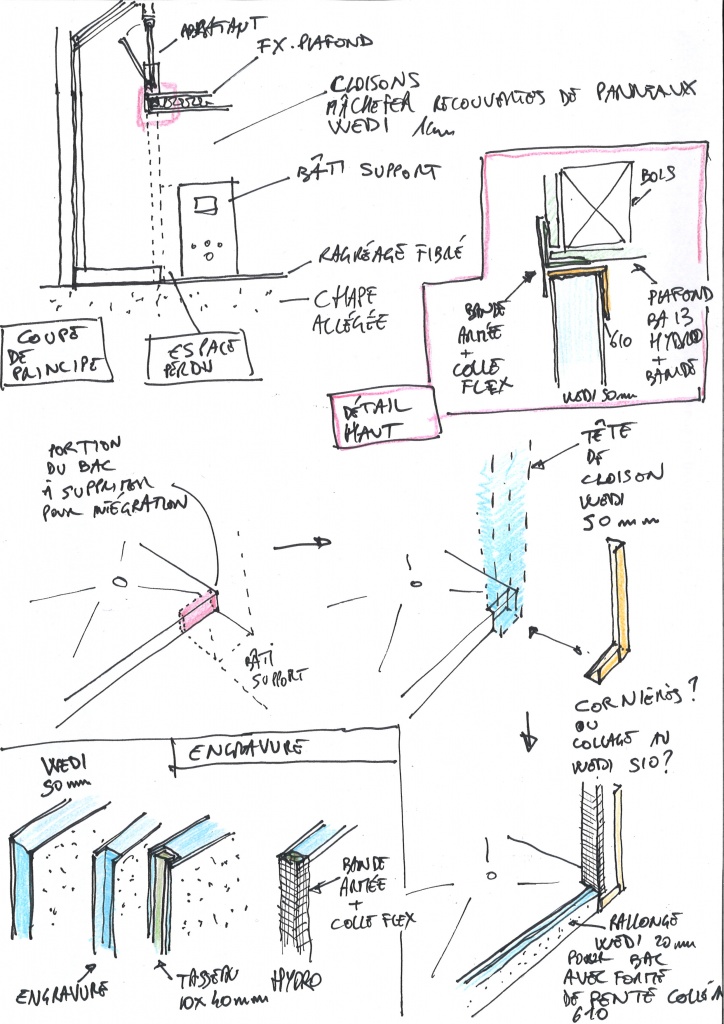 ABATTANT
FX. PLAFOND
CLOISONS
MÂCHEFER RECOUVERTES DE PANNEAUX
WEDI 1cm
BÂTI SUPPORT
RAGRÉAGE FIBRÉ
CHAPE
ALLÉGÉE
COUPE
DE
PRINCIPE
ESPACE
PERDU
BOIS
BANDE
ARMÉE
+
COLLE
FLEX
610
PLAFOND
BA 13
HYDRO
+
BANDE
WEDI 50mm
DÉTAIL
HAUT
PORTION
DU BAC
À SUPPRIMER
POUR INTÉGRATION
BÂTI
SUPPORT
TÊTE
DE
CLOISON
WEDI
50 mm
CORNIÈRES ?
OU
COLLAGE AU
WEDI 610 ?
ENGRAVURE
WEDI
50mm
ENGRAVURE
TASSEAU
10X40mm
HYDRO
BANDE
ARMÉE
+
COLLE FLEX
RALLONGE
WEDI 20mm
POUR BAC
AVEC FORME
DE PENTE COLLÉ AU
610